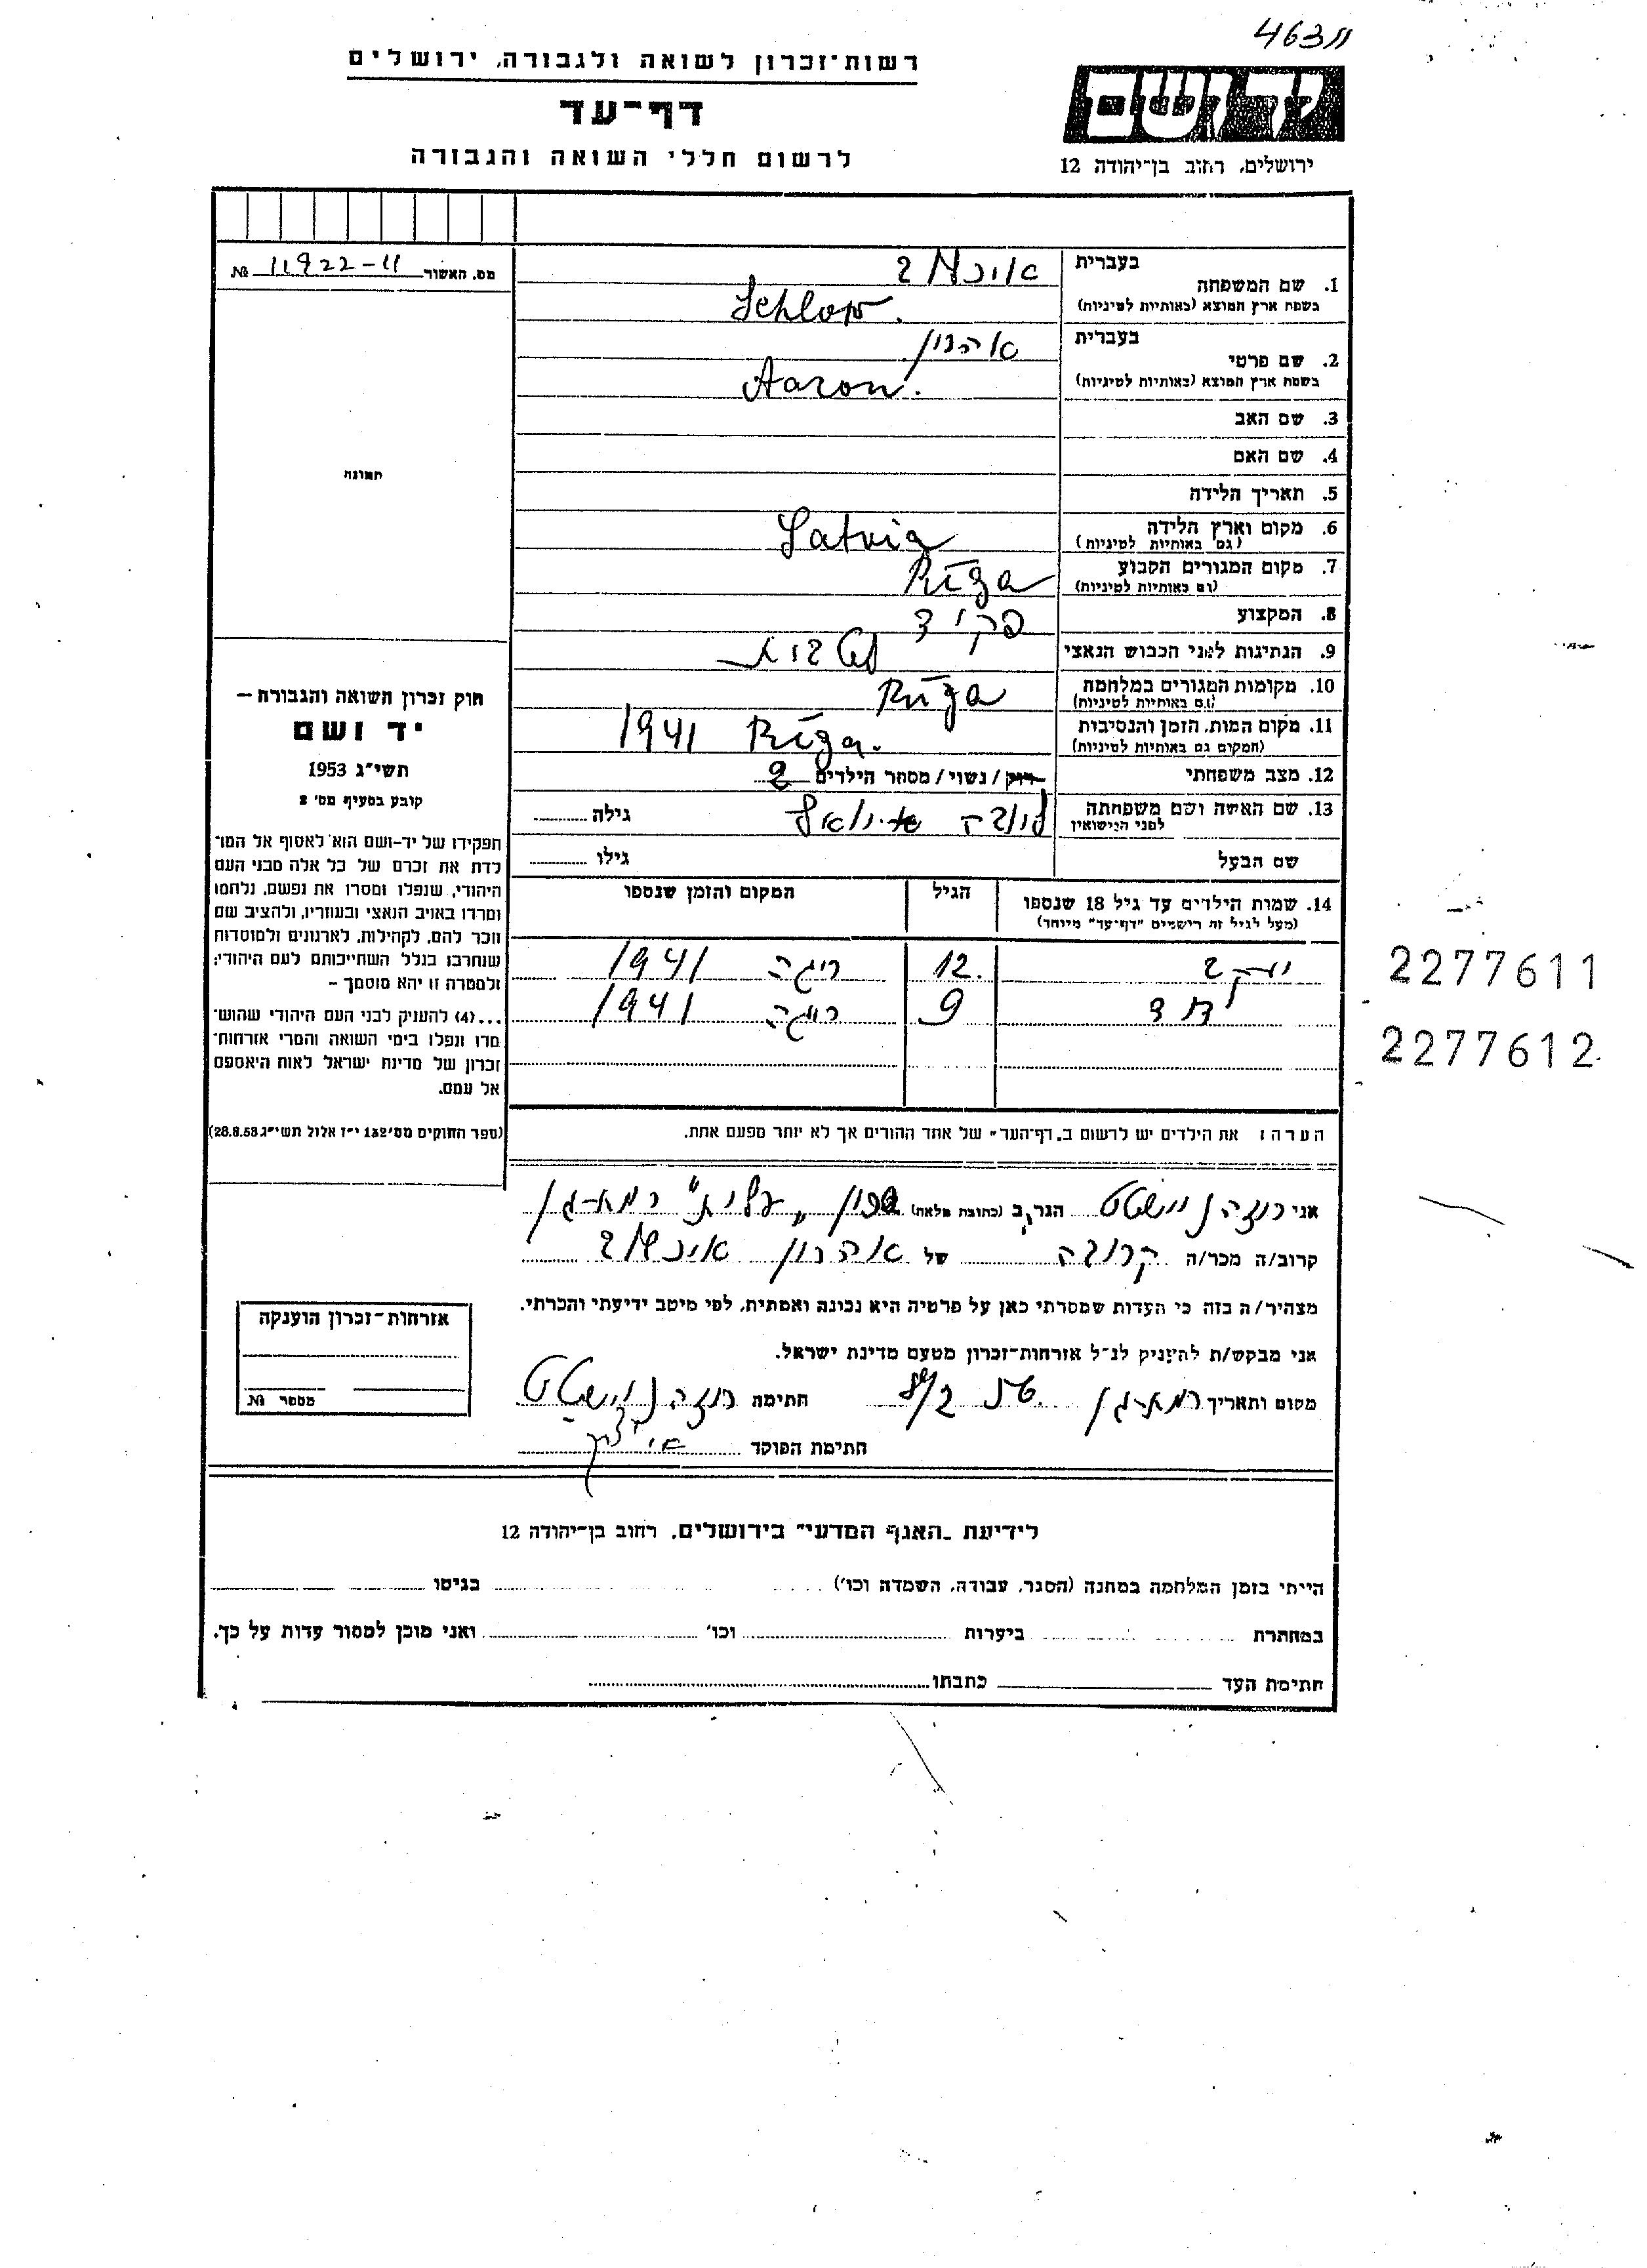 463 וו
רשות־זכרון לשואה ולגבורה, ירושלים
דף־עד
לרשום חללי השואה והגבורה
יד ושם
ירושלים, רחוב בן־יהודה 12
מס. האשור 11922-11 №
תמונה
בעברית
1. שם המשפחה
בשפת ארץ המוצא (באותיות לטיניות)
בעברית אהרון
2. שם פרטי
בשפת ארץ המוצא (באותיות לטיניות) Aaron.
3. שם האב
4. שם האם
5. תאריך הלידה
6. מקום וארץ הלידה Latvia
(גם באותיות לטיניות)
7. מקום המגורים הקבוע Rīga
(גם באותיות לטיניות)
8. המקצוע פקיד
9. הנתינות לפני הכבוש הנאצי
10. מקומות המגורים במלחמה Rīga
(גם באותיות לטיניות)
11. מקום המות, הזמן והנסיבות Rīga. 1941
(המקום גם באותיות לטיניות)
12. מצב משפחתי רווק/נשוי/מספר הילדים 2
13. שם האשה ושם משפחתה גילה
לפני הנישואין
שם הבעל גילו
14. שמות הילדים עד גיל 18 שנספו הגיל המקום והזמן שנספו
(מעל לגיל זה רושמים "דף־עד" מיוחד)
יעקב 12. ריגה 1941
דוד 9 ריגה 1941
2277611
2277612
הערה: את הילדים יש לרשום ב„דף־העד" של אחד ההורים אך לא יותר מפעם אחת.
חוק זכרון השואה והגבורה –
יד ושם
תשי"ג 1953
קובע בסעיף מס' 2
תפקידו של יד-ושם הוא לאסוף אל המו־
לדת את זכרם של כל אלה מבני העם
היהודי, שנפלו ומסרו את נפשם, נלחמו
ומרדו באויב הנאצי ובעוזריו, ולהציב שם
וזכר להם, לקהילות, לארגונים ולמוסדות
שנחרבו בגלל השתייכותם לעם היהודי;
ולמטרה זו יהא מוסמך –
...(4) להעניק לבני העם היהודי שהוש־
מדו ונפלו בימי השואה והמרי אזרחות־
זכרון של מדינת ישראל לאות היאספם
אל עמם.
(ספר החוקים מס' 132 י"ז אלול תשי"ג 28.8.53)
אני רוזה נוישטט הגר/ה ב (כתובת מלאה) רמת-גן
קרוב/ה מכר/ה קרובה של אהרון
מצהיר/ה בזה כי העדות שמסרתי כאן על פרטיה היא נכונה ואמתית, לפי מיטב ידיעתי והכרתי.
אני מבקש/ת להעניק לנ"ל אזרחות־זכרון מטעם מדינת ישראל.
מקום ותאריך רמת-גן חתימה רוזה נוישטט
חתימת הפוקד
אזרחות־זכרון הוענקה
מספר №
לידיעת „האגף המדעי" בירושלים, רחוב בן־יהודה 12
הייתי בזמן המלחמה במחנה (הסגר, עבודה, השמדה וכו') בגיטו
במחתרת ביערות וכו' ואני מוכן למסור עדות על כך.
חתימת העד כתבתו